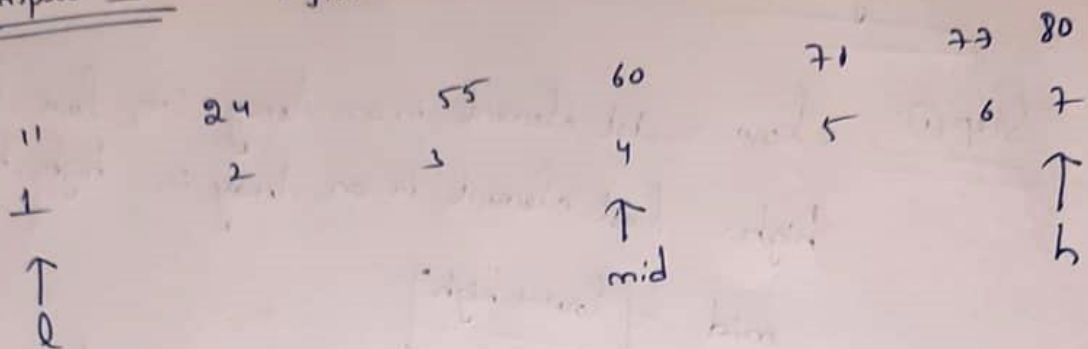 11 24 55 60 71 77 80
1 2 3 4 5 6 7
l mid h